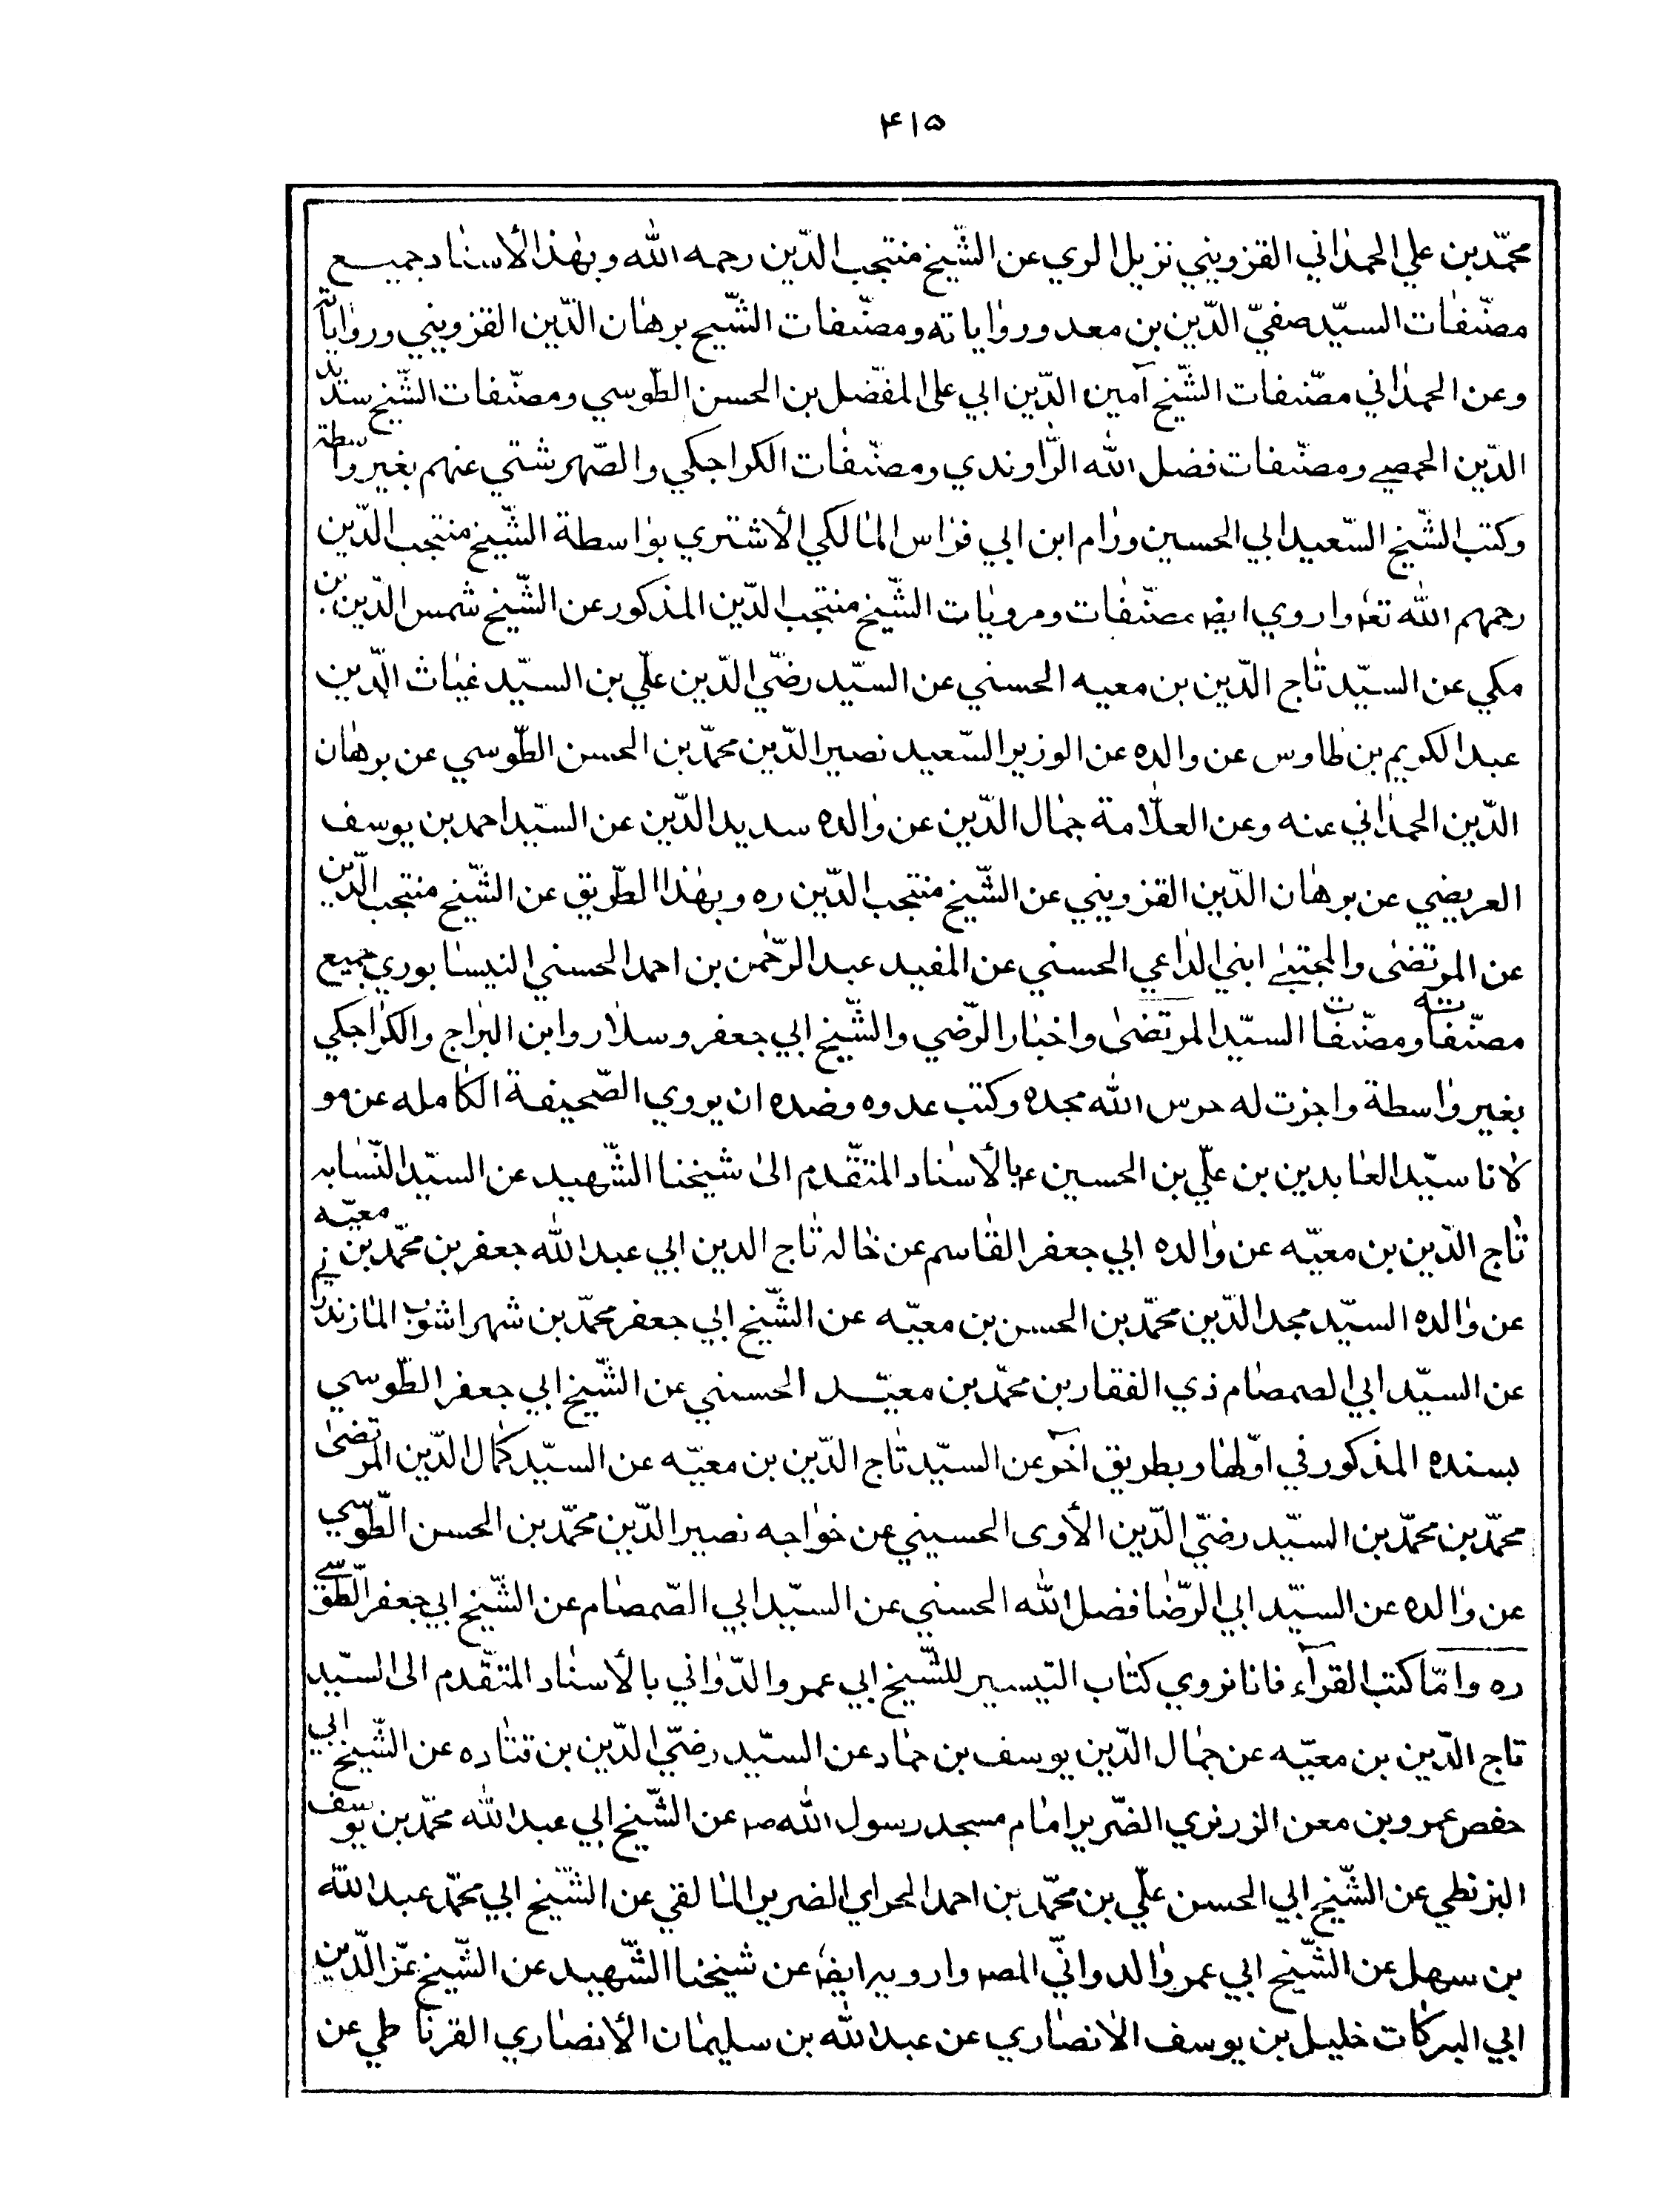 ۴۱۵
محمّد بن علي الحمدٰاني القزويني نزيل الري عن الشّيخ منتجب الدّين رحمه اللّٰه وبهٰذا الأسنٰاد جميع
مصنّفٰات السيّد صفيّ الدّين بن معد وروٰاياته ومصنّفات الشّيخ برهٰان الدّين القزويني وروٰاياته
وعن الحمدٰاني مصّنفات الشّيخ آمين الدّين ابي على المفضّل بن الحسن الطّوسي ومصنّفات الشّيخ سديد
الدّين الحمصي ومصنّفات فضل اللّٰه الرّاوندي ومصنّفٰات الكراجكي والصّهرشتي عنهم بغير واسطة
وكتب الشّيخ السّعيد ابي الحسين ورٰام ابن ابي فرٰاس المٰالكي الأشتري بوٰاسطة الشّيخ منتجب الدّين
رحمهم اللّٰه تعٰ واروي ايضا مصنّفٰات ومرويٰات الشّيخ منتجب الدّين المذكور عن الشّيخ شمس الدّين بن
مكي عن السيّد تٰاج الدّين بن معيه الحسني عن السيّد رضيّ الدّين عليّ بن السيّد غيٰاث الدّين
عبد الكريم بن طٰاوس عن والده عن الوزير السّعيد نصير الدّين محمّد بن الحسن الطّوسي عن برهٰان
الدّين الحمدٰاني عنه وعن العلّامة جمٰال الدّين عن وٰالده سديد الدّين عن السيّد احمد بن يوسف
العريضي عن برهٰان الدّين القزويني عن الشّيخ منتجب الدّين ره وبهٰذا الطّريق عن الشّيخ منتجب الدّين
عن المرتضىٰ والمجتبىٰ ابني الدٰاعي الحسني عن المفيد عبد الرّحمٰن بن احمد الحسني النيسٰابوري جميع
مصنّفاته ومصنّفات السيّد المرتضىٰ واخبٰار الرّضي والشّيخ ابي جعفر وسلٰار وابن البرٰاج والكرٰاجكي
بغير وٰاسطة واجزت له حرس اللّٰه مجده وكتب عدوه وضده ان يروي الصّحيفة الكٰامله عن مو
لانا سيّد العٰابدين بن عليّ بن الحسين ع بالأسنٰاد المتقّدم الىٰ شيخنا الشّهيد عن السيّد النّسٰابه
تٰاج الدّين بن معيّه عن وٰالده ابي جعفر القٰاسم عن خٰاله تٰاج الدين ابي عبد اللّٰه جعفر بن محمّد بن معيّه
عن وٰالده السيّد مجد الدّين محمّد بن الحسن بن معيّه عن الشّيخ ابي جعفر محمّد بن شهراشوب المٰازندراني
عن السيّد ابي الصمصٰام ذي الفقار بن محمّد بن معبّد الحسني عن الشّيخ ابي جعفر الطّوسي
بسنده المذكور في اوّلهٰا وبطريق آخر عن السيّد تٰاج الدّين بن معيّه عن السيّد كمٰال الدّين المرتضىٰ
محمّد بن محمّد بن السيّد رضيّ الدّين الأوى الحسيني عن خوٰاجه نصير الدّين محمّد بن الحسن الطّوسي
عن وٰالده عن السيّد ابي الرّضٰا فضل اللّٰه الحسني عن السيّد ابي الصّمصٰام عن الشّيخ ابي جعفر الطّوسي
ره وامّا كتب القرآء فانا نروي كتٰاب التيسير للشّيخ ابي عمرو الدّوٰاني بالأسنٰاد المتقّدم الى السيّد
تاج الدّين بن معيّه عن جمٰال الدّين يوسف بن حمٰاد عن السيّد رضيّ الدّين بن قتٰاده عن الشّيخ ابي
حفص عمرو بن معن الزرنري الضّرير امٰام مسجد رسول اللّٰه ص عن الشّيخ ابي عبد اللّٰه محمّد بن يوسف
البزنطي عن الشّيخ ابي الحسن عليّ بن محمّد بن احمد الحراي الضرير المٰالقي عن الشّيخ ابي محمّد عبد اللّٰه
بن سهل عن الشّيخ ابي عمر وٰالدوانيّ المص وارويه ايضا عن شيخنا الشّهيد عن الشّيخ عزّ الدّين
ابي البركٰات خليل بن يوسف الانصٰاري عن عبد اللّٰه بن سليمٰان الأنصٰاري القرنٰاطي عن